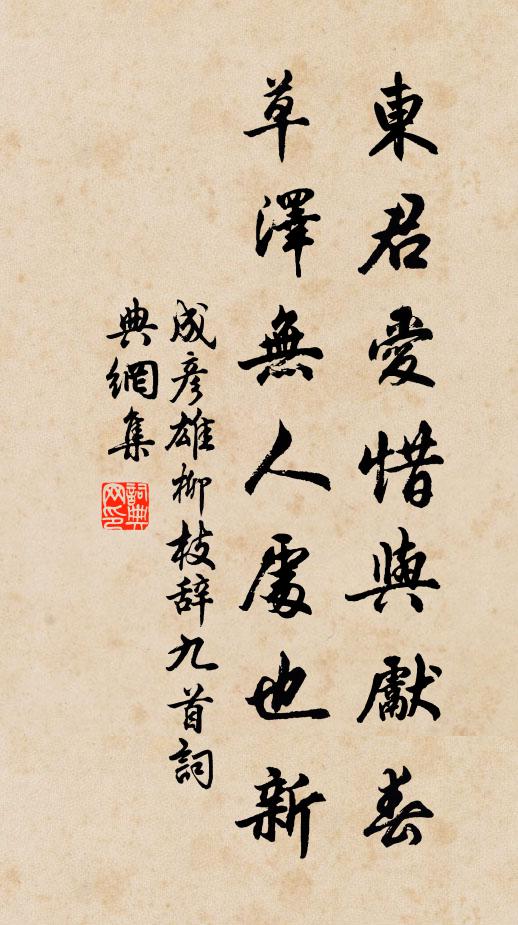 東君愛惜與獻春
草澤無人處也新
成彦雄柳枝辞九首詞
典網集
詞典
网印